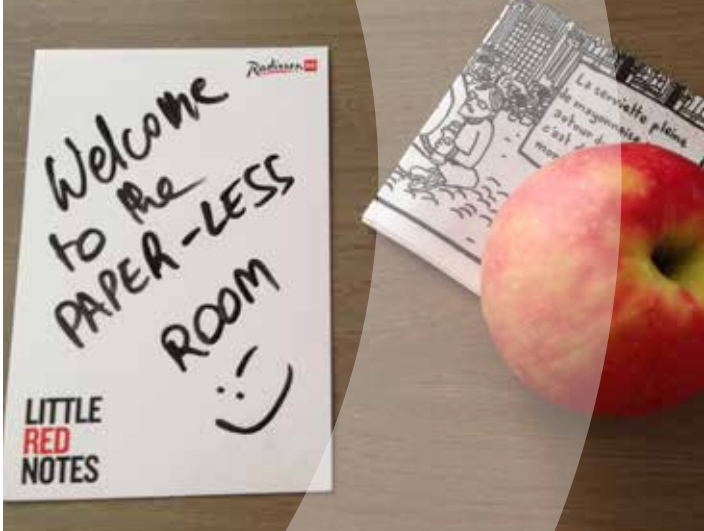 Radisson RED
Welcome
to the
PAPER-LESS
ROOM
LITTLE
RED
NOTES
La serviette pleine
de mayonnaise
autour du
c'est